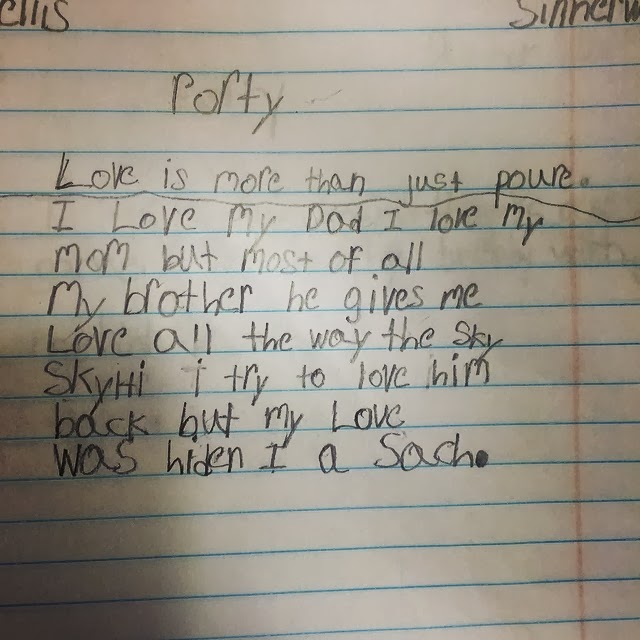 ellis Sinnerw
Porty
Love is more than just poure.
I Love my Dad I love my
mom but most of all
My brother he gives me
Love all the way the sky
SkyHi I try to love him
back but my Love
was hiden I a Sach.